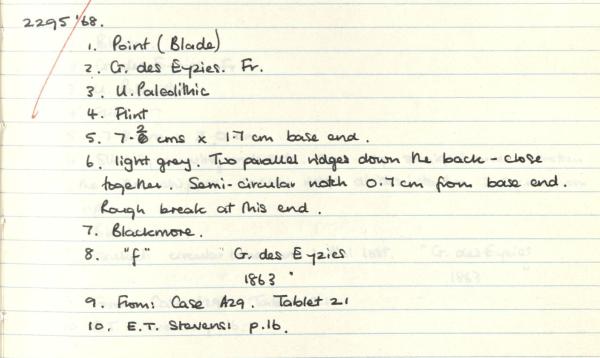 2295'68.
1. Point (Blade)
2. G. des Eyzies. Fr.
3. U. Paleolithic
4. Flint
5. 7.2 cms x 1.7 cm base end.
6. light grey. Two parallel ridges down the back - close
together. Semi-circular notch 0.7 cm from base end.
Rough break at this end.
7. Blackmore.
8. "f" "G. des Eyzies
1863"
9. From: Case A29. Tablet 21
10. E.T. Stevens: p.16.